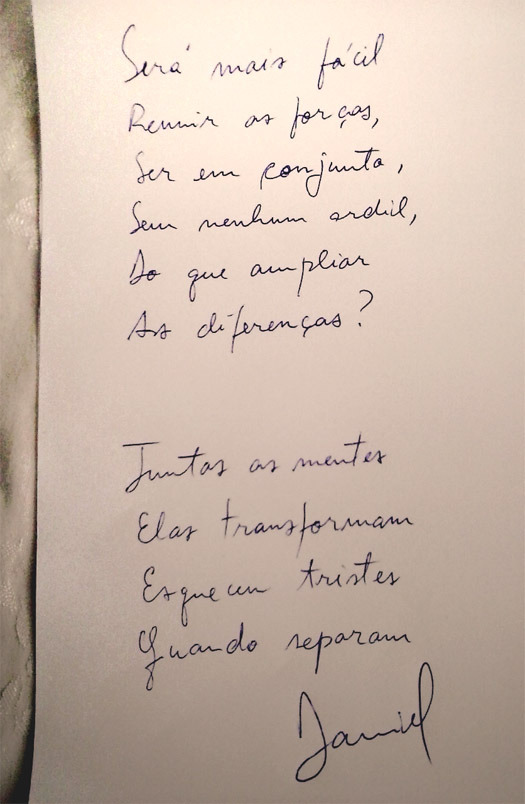 Será mais fácil
Reunir as forças,
Ser em conjunto,
Sem nenhum ardil,
Do que ampliar
As diferenças?
Juntas as mentes
Elas transformam
Esquecem tristes
Quando separam
Daniel